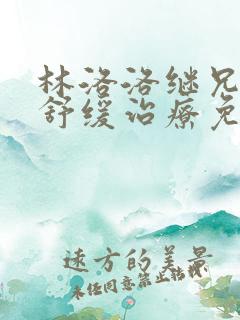 林洛洛继兄
舒缓治疗免
远方的美景
未经同意禁止转载